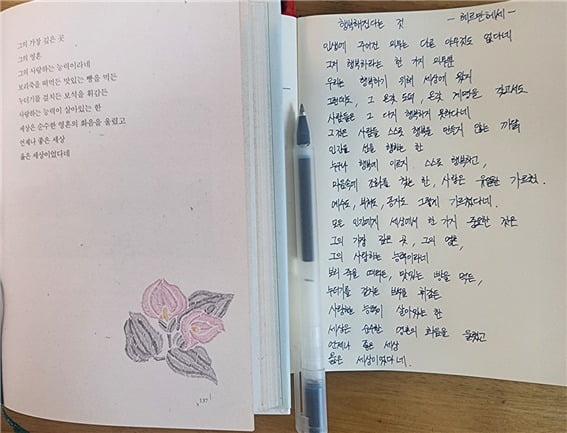 그의 가장 깊은 곳
그의 영혼
그의 사랑하는 능력이라네
보리죽을 떠먹든 맛있는 빵을 먹든
누더기를 걸치든 보석을 휘감든
사랑하는 능력이 살아있는 한
세상은 순수한 영혼의 화음을 울렸고
언제나 좋은 세상
옳은 세상이었다네
137
행복해진다는 것 - 헤르만헤세 -
인생에 주어진 의무는 다른 아무것도 없다네
그저 행복하라는 한 가지 의무뿐
우리는 행복하기 위해 세상에 왔지
그런데도, 그 온갖 도덕, 온갖 계명을 갖고서도
사람들은 그 다지 행복하지 못하다네
그것은 사람들 스스로 행복을 만들지 않는 까닭
인간은 선을 행하는 한
누구나 행복에 이르지 스스로 행복하고,
마음속에 조화를 찾는 한, 사랑은 유일한 가르침.
예수도, 부처도, 공자도 그렇게 가르쳤다네.
모든 인간에게 세상에서 한 가지 중요한 것은
그의 가장 깊은 곳, 그의 영혼,
그의 사랑하는 능력이라네
보리 죽을 떠먹든, 맛있는 빵을 먹든,
누더기를 걸치든 보석을 휘감든
사랑하는 능력이 살아있는 한
세상은 순수한 영혼의 화음을 울렸고
언제나 좋은 세상
옳은 세상이었다네.